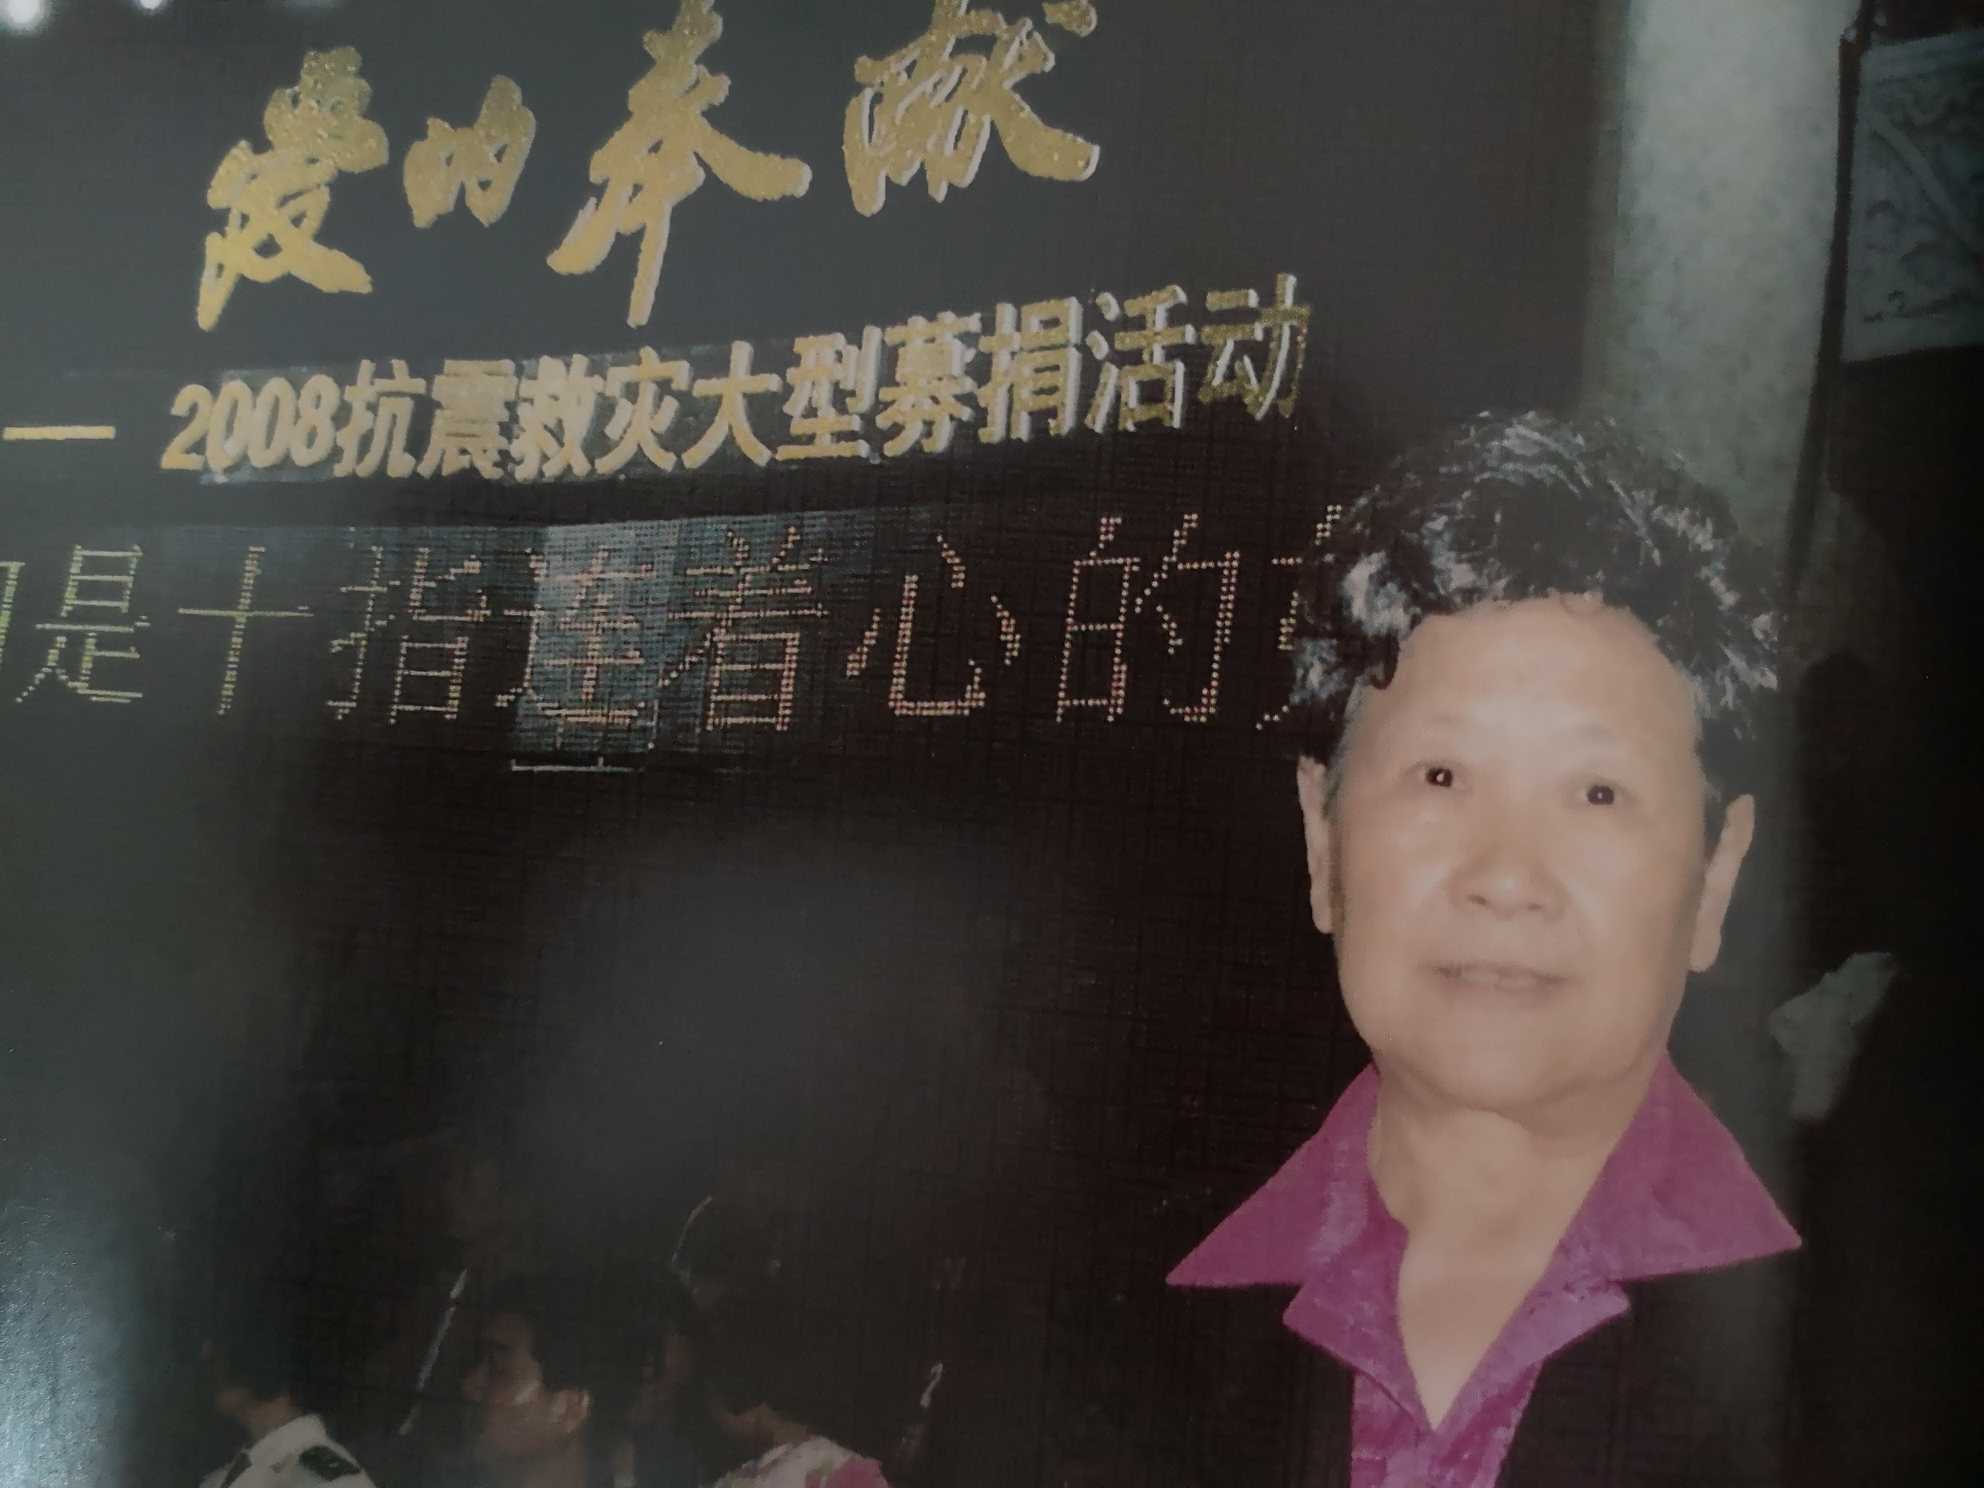 爱的奉献
—2008抗震救灾大型募捐活动
是十指连着心的